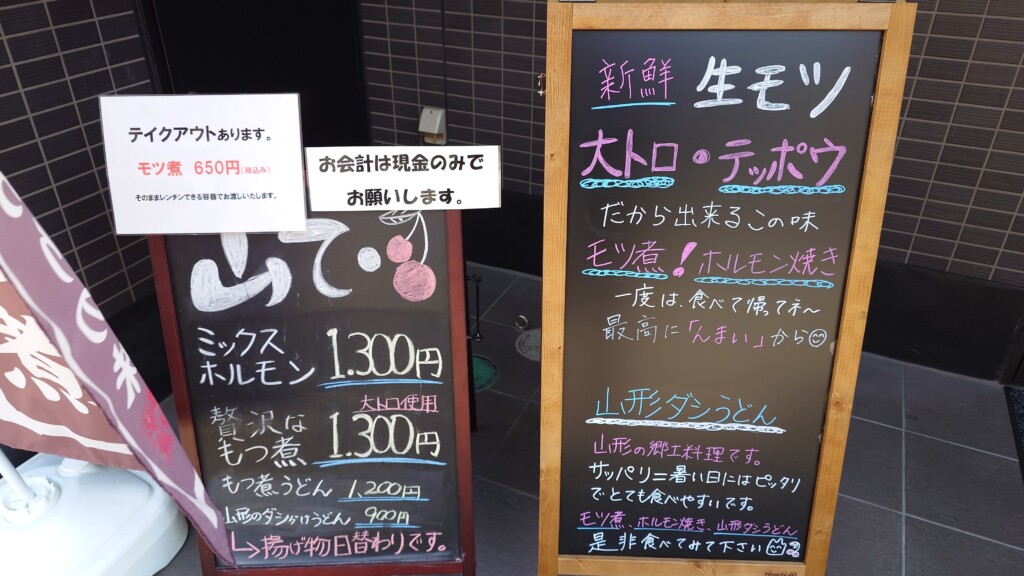 テイクアウトあります。
モツ煮 650円(税込み)
そのままレンチンできる容器でお渡しいたします。
お会計は現金のみで
お願いします。
山て
ミックス
ホルモン 1.300円
大トロ使用
贅沢な
もつ煮 1.300円
もつ煮うどん 1,200円
山形のダシかけうどん 900円
↳揚げ物日替わりです。
新鮮 生モツ
大トロ・テッポウ
だから出来るこの味
モツ煮!ホルモン焼き
一度は、食べて帰ってネ〜
最高に「んまい」から
山形ダシうどん
山形の郷土料理です。
サッパリ=暑い日にはピッタリ
でとても食べやすいです。
モツ煮、ホルモン焼き、山形ダシうどん
是非食べてみて下さい
煮